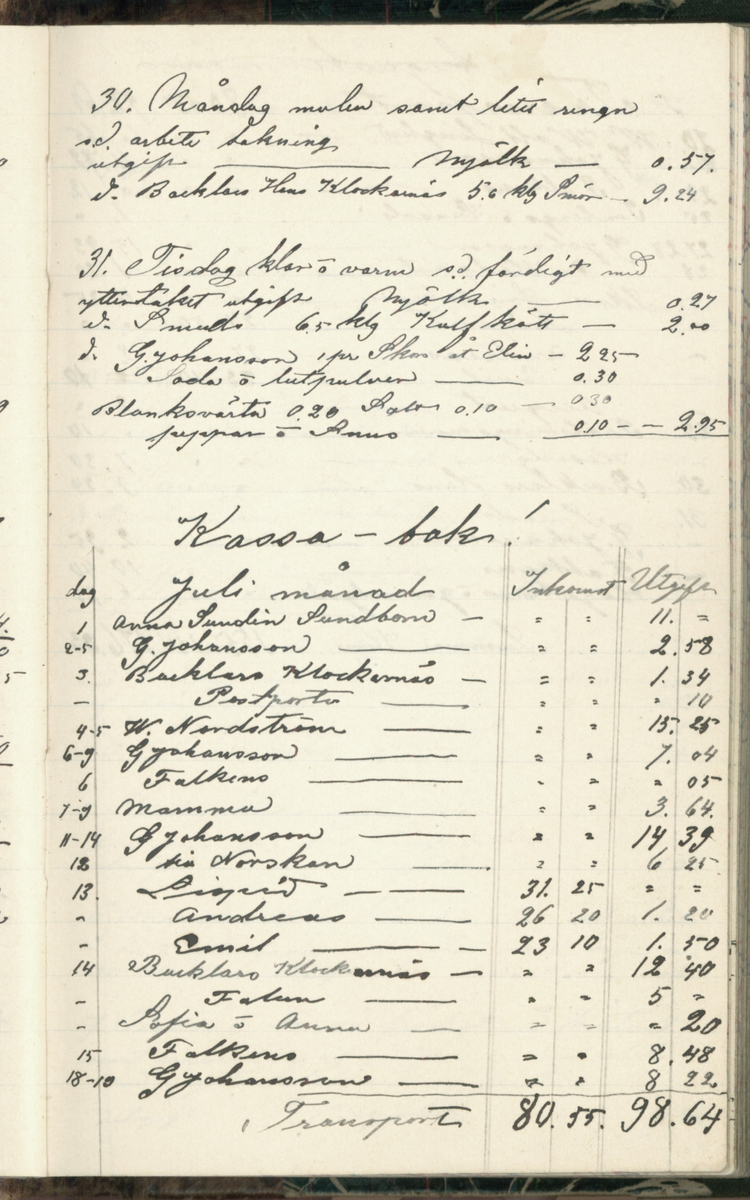 30. Måndag mulen samt litet ringn
sd. arbete bakning
utgift — Mjölk — 0.57.
d. Backlars Hans Klockarnäs 5.6 klg Smör — 9.24
31. Tisdag klar ō varm sd. färdigt med
yttertaket utgift Mjölk — 0.27
d. Smeds 6.5 klg Kalfkött — 2.00
d. G. Johansson 1 pr Skor åt Elin — 2 25
Soda ō lutpulver — 0.30
Blanksvärta 0.20 0.10 — 0 30
peppar ō — 0.10 — — 2.95
Kassa – bok!
dag Juli månad Inkomst Utgift
1 Anna Sundin Sundborn — " " 11. =
2-5 G. Johansson — " " 2.58
3. Backlars Klockarnäs — " " 1. 34
— Postporto — " " " 10
4-5 W. Nordström — " " 15. 25
6-9 G Johansson — " " 7. 04
6 Falkens — " " " 05
7-9 Mamma — " " 3. 64.
11-14 G Johansson — " " 14 39
12 Norskan — " " 6 25
13. — — 31. 25 " "
" Andreas — 26 20 1. 20
- Emil — 23 10 1. 50
14 Backlars Klockarnäs — " " 12 40
- Falun — " " 5 "
- Sofia ō Anna — " " " 20
15 Falkens — " " 8. 48
18-19 G Johansson — " " 8 22
Transport 80. 55. 98.64